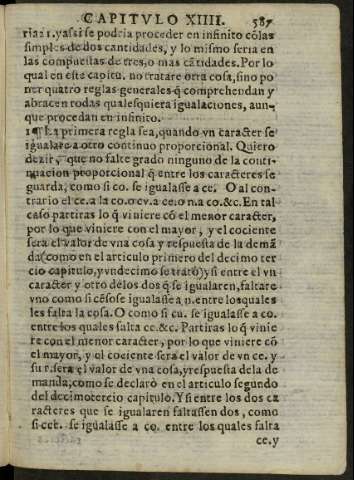 CAPITVLO XIIII. 587
ria 21. y assi se podria proceder en infinito cõ las
simples de dos cantidades, y lo mismo seria en
las compuestas de tres, o mas cãtidades. Por lo
qual en este capitu. no tratare otra cosa, sino po
ner quatro reglas generales q̃ comprehendan y
abracen todas qualesquiera igualaciones, aun-
que procedan en infinito.
1¶ La primera regla sea, quando vn caracter se
igualare a otro continuo proporcional. Quiero
dezir, que no falte grado ninguno de la conti-
nuacion proporcional q̃ entre los caracteres se
guarda, como si co. se igualasse a ce. O al con-
trario el ce. a la co. o cu. a ce. o n. a co. &c. En tal
caso partiras lo q̃ viniere cõ el menor caracter,
por lo que viniere con el mayor, y el cociente
sera el valor de vna cosa y respuesta de la demã
da (como en el articulo primero del decimo ter
cio capitulo, y vndecimo se trato) y si entre el vn
caracter y otro delos dos q̃ se igualaren, faltare
vno como si cēsos e igualasse a n. entre los quales
les falta la cosa. O como si cu. se igualasse a co.
entre los quales falta ce. &c. Partiras lo q̃ vinie
re con el menor caracter, por lo que viniere cõ
el mayor, y el cociente sera el valor de vn ce. y
su r. sera el valor de vna cosa, y respuesta dela de
manda, como se declarò en el articulo segundo
del decimotercio capitulo. Y si entre los dos ca
racteres que se igualaren faltassen dos, como
si cce. se igualasse a co. entre los quales falta
ce. y